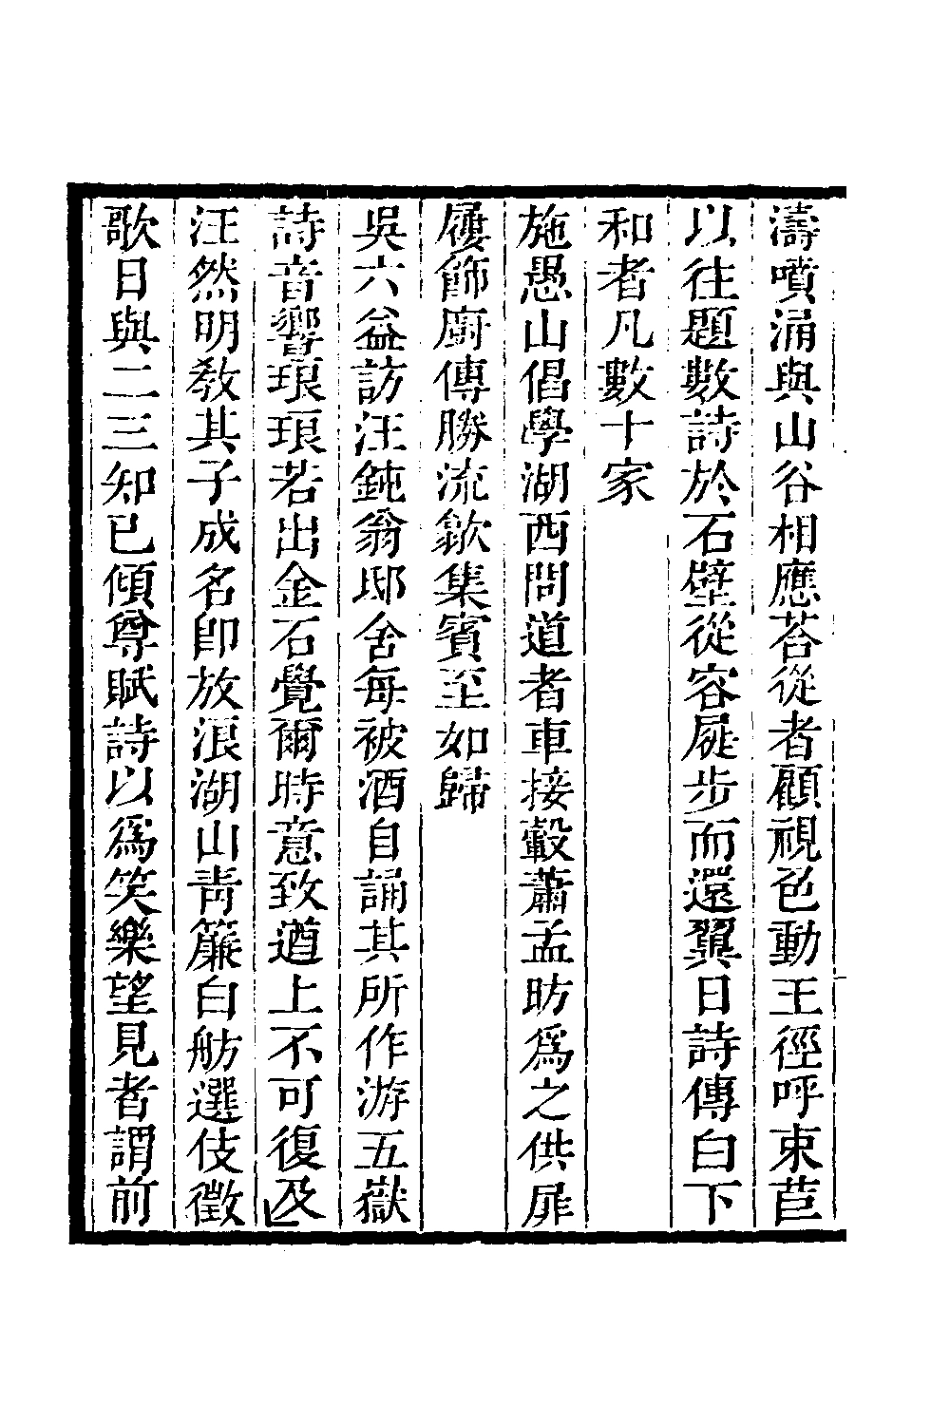 濤噴涌與山谷相應荅從者顧視色動王徑呼束苣
以往題數詩於石壁從容屣步而還翼日詩傳白下
和者凡數十家
施愚山倡學湖西問道者車接轂蕭孟昉爲之供扉
屨飾廚傳勝流歙集賓至如歸
吳六益訪汪鈍翁邸舍每被酒自誦其所作游五嶽
詩音響琅琅若出金石覺爾時意致遒上不可復及
汪然明敎其子成名卽放浪湖山靑簾白舫選伎徵
歌日與二三知已傾尊賦詩以爲笑樂望見者謂前